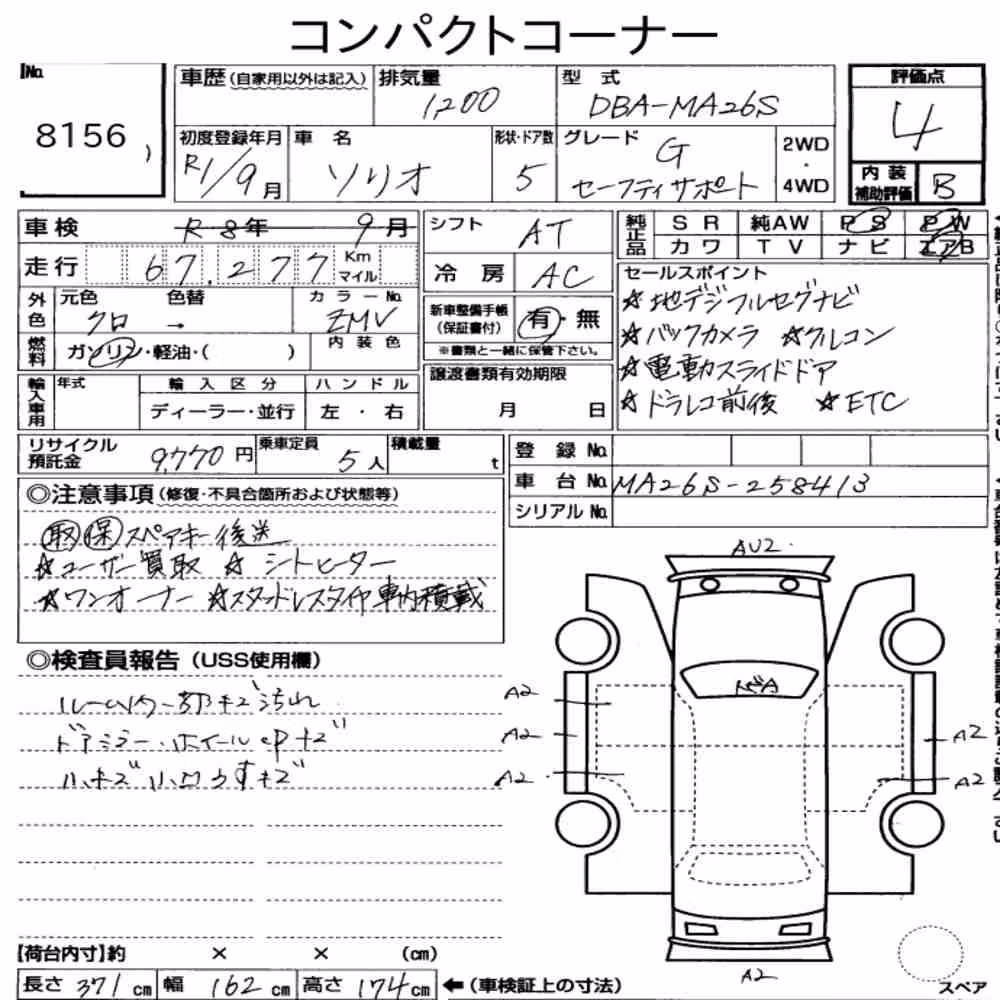 コンパクトコーナー
No. 8156
車歴(自家用以外は記入) 排気量 1200 型式 DBA-MA26S 評価点 4
初度登録年月 R1/9月 車名 ソリオ 形状・ドア数 5 グレード G セーフティサポート 2WD・4WD 内装補助評価 B
車検 R8年 9月
走行 67.277 Km マイル
シフト AT
冷房 AC
純正品 SR 純AW PS PW
カワ TV ナビ エアB
外色 元色 クロ 色替 → カラーNo. ZMV
燃料 ガソリン・軽油・( ) 内装色
新車整備手帳(保証書付) 有・無
※書類と一緒に保管下さい。
セールスポイント
☆地デジフルセグナビ
☆バックカメラ ☆クルコン
☆電動スライドドア
☆ドラレコ前後 ☆ETC
輸入車用 年式 輸入区分 ハンドル
ディーラー・並行 左・右
譲渡書類有効期限
月 日
リサイクル預託金 9,770円 乗車定員 5人 積載量 t
登録No.
車台No. MA26S-258413
シリアルNo.
◎注意事項(修復・不具合箇所および状態等)
取 保 スペアキー後送
☆ユーザー買取 ☆シートヒーター
☆ワンオーナー ☆スタッドレスタイヤ車内積載
◎検査員報告(USS使用欄)
ルーム内一部キズ汚れ
ドアミラー・ホイールcpキズ
小キズ小凹うすキズ
AU2
トビA
A2
A2
A2
A2
A2
A2
【荷台内寸】約 × × (cm)
長さ 371cm 幅 162cm 高さ 174cm ←(車検証上の寸法)
スペア